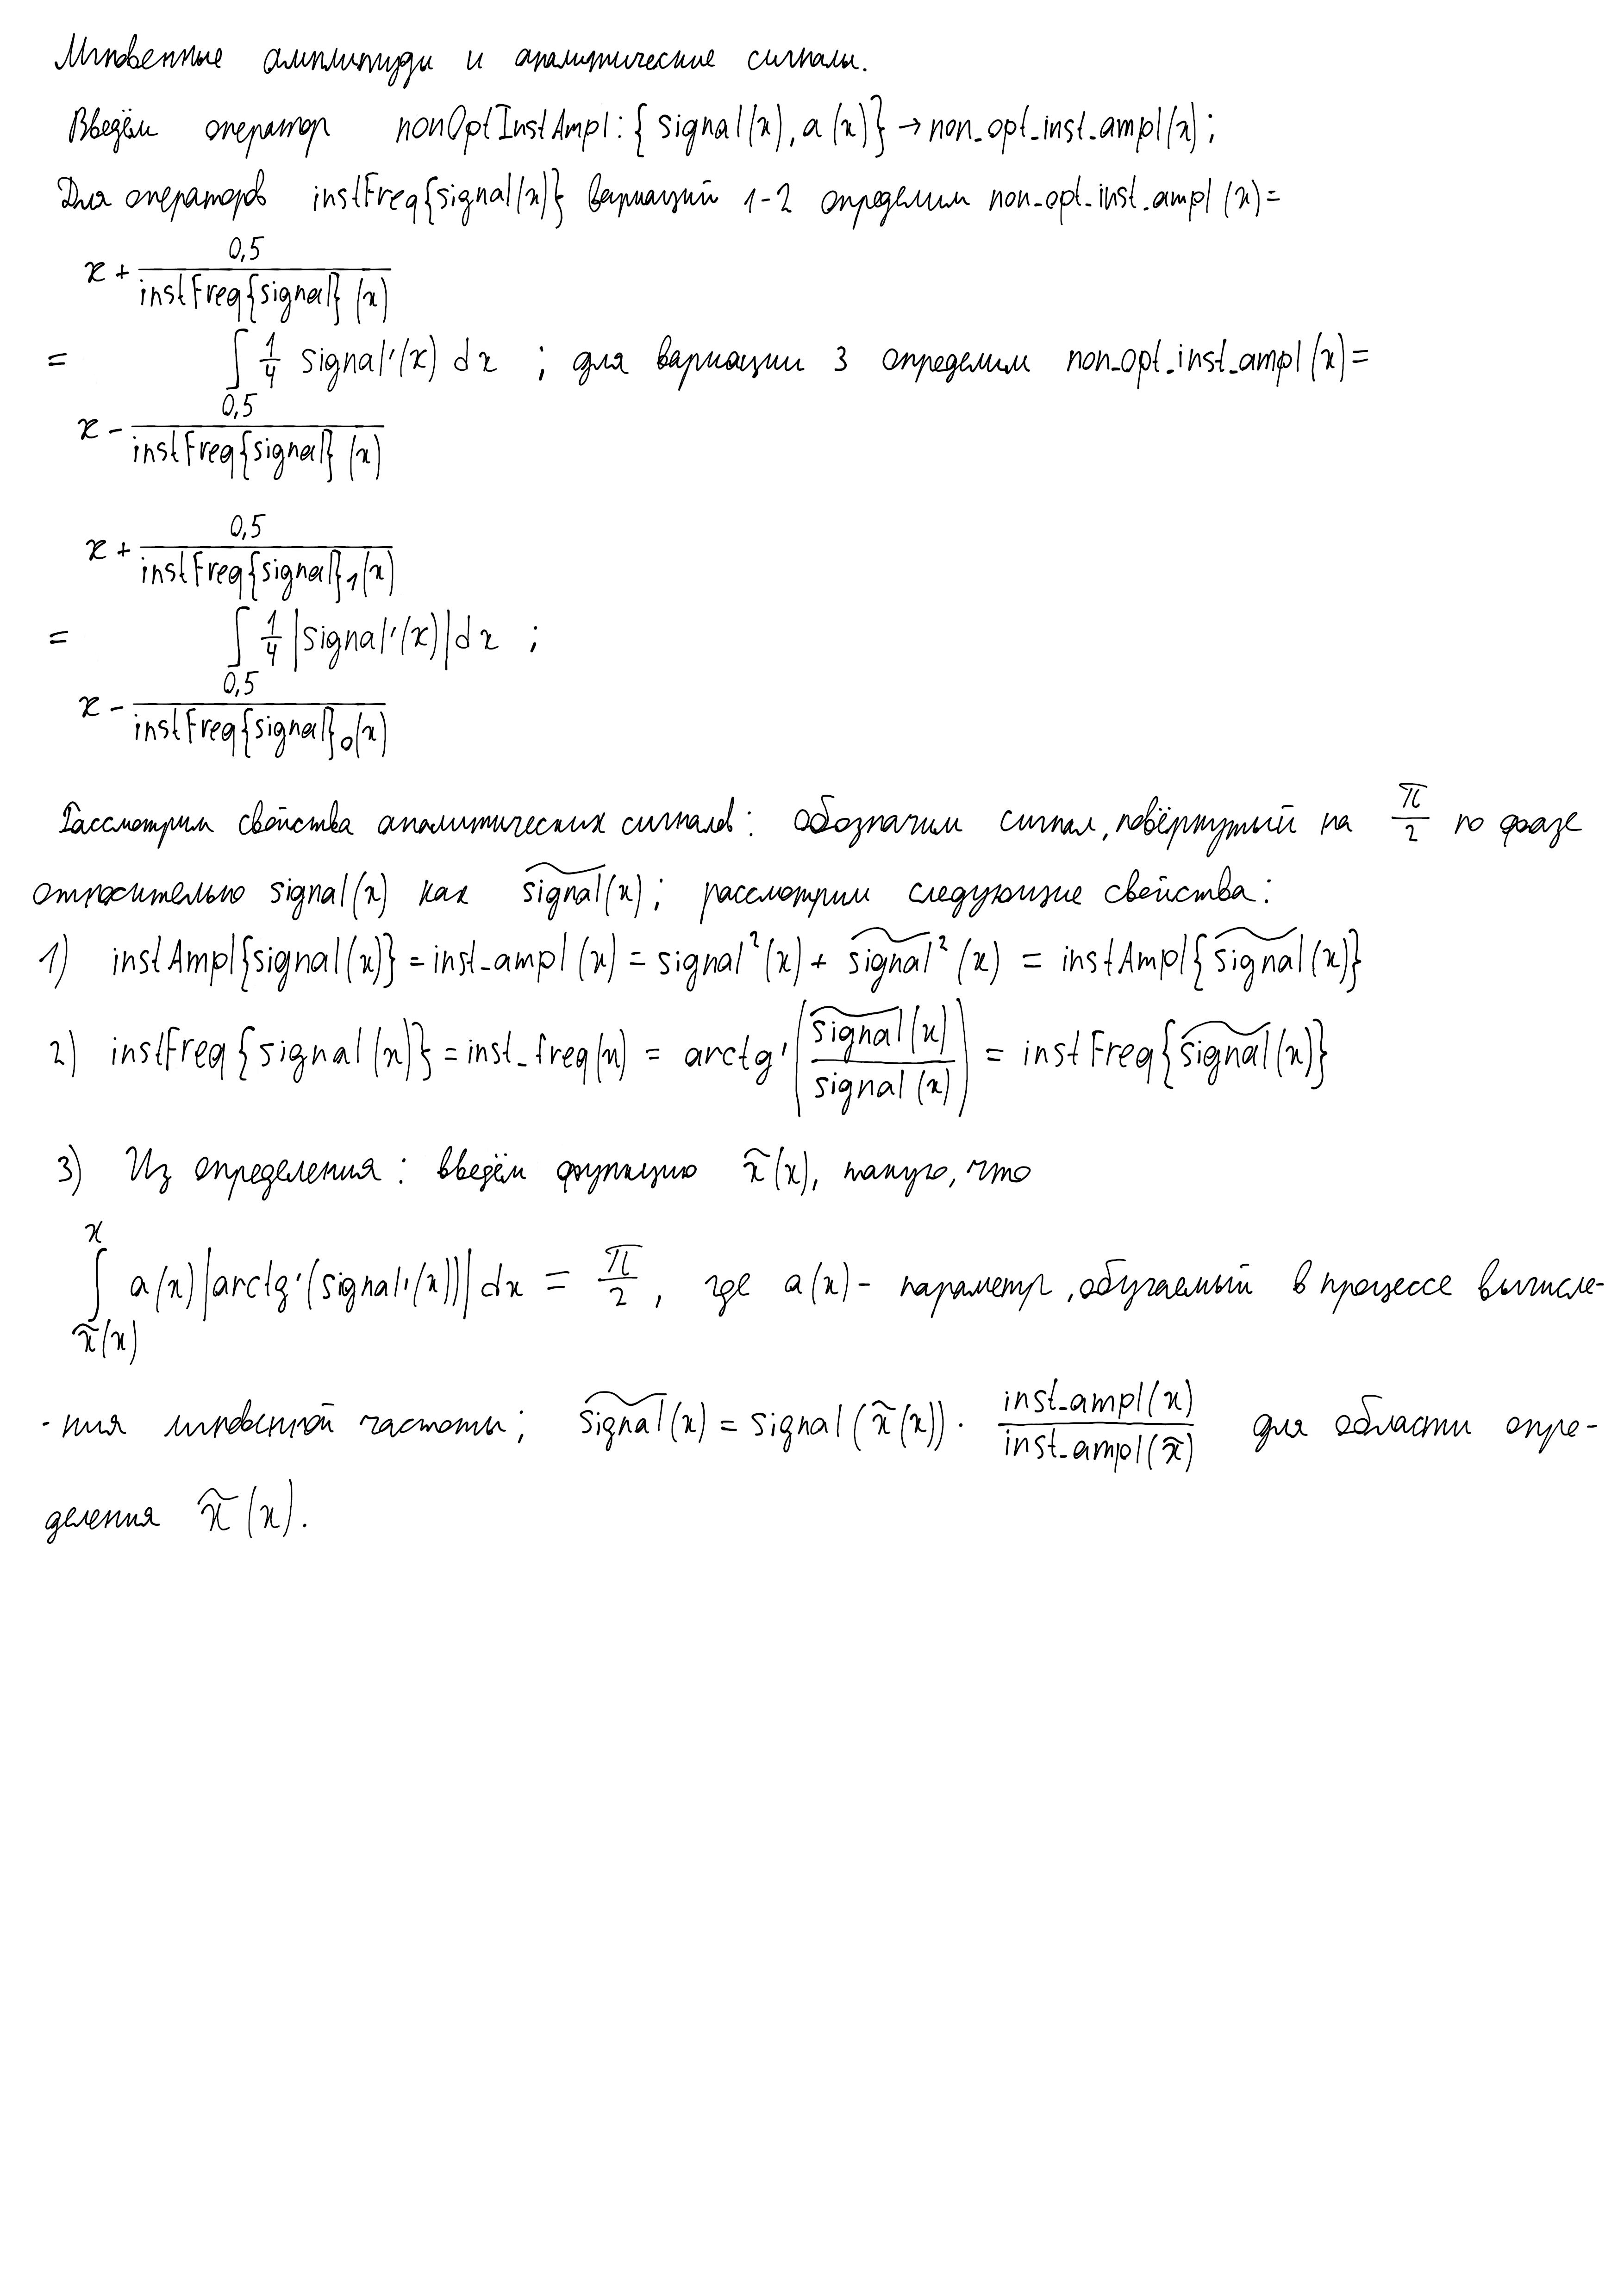 Мгновенные амплитуды и аналитические сигналы.
Введём оператор nonOptInstAmpl: { signal(x), a(x)} → non_opt_inst_ampl(x);
Для операторов instFreq{signal(x)} вариаций 1-2 определим non_opt_inst_ampl (x)=
x + 0,5 / instFreq{signal} (x)
= ∫ 1/4 signal'(x) dx ; для вариации 3 определим non_opt_inst_ampl (x)=
x - 0,5 / instFreq{signal} (x)
x + 0,5 / instFreq{signal}₁(x)
= ∫ 1/4 |signal'(x)| dx ;
x - 0,5 / instFreq{signal}₀(x)
Рассмотрим свойства аналитических сигналов: обозначим сигнал, повёрнутый на π/2 по фазе
относительно signal(x) как s͠ignal(x); рассмотрим следующие свойства:
1) instAmpl{signal(x)} = inst_ampl (x) = signal²(x) + s͠ignal² (x) = instAmpl{s͠ignal(x)}
2) instFreq{signal(x)} = inst_freq(x) = arctg'(s͠ignal(x) / signal(x)) = instFreq{s͠ignal(x)}
3) Из определения: введём функцию x̃(x), такую, что
x
∫ a(x)|arctg'(signal'(x))| dx = π/2, где a(x) - параметр, обучаемый в процессе вычисле-
x̃(x)
-ния мгновенной частоты; s͠ignal(x) = signal(x̃(x)) · inst_ampl(x) / inst_ampl(x̃) для области опре-
деления x̃(x).